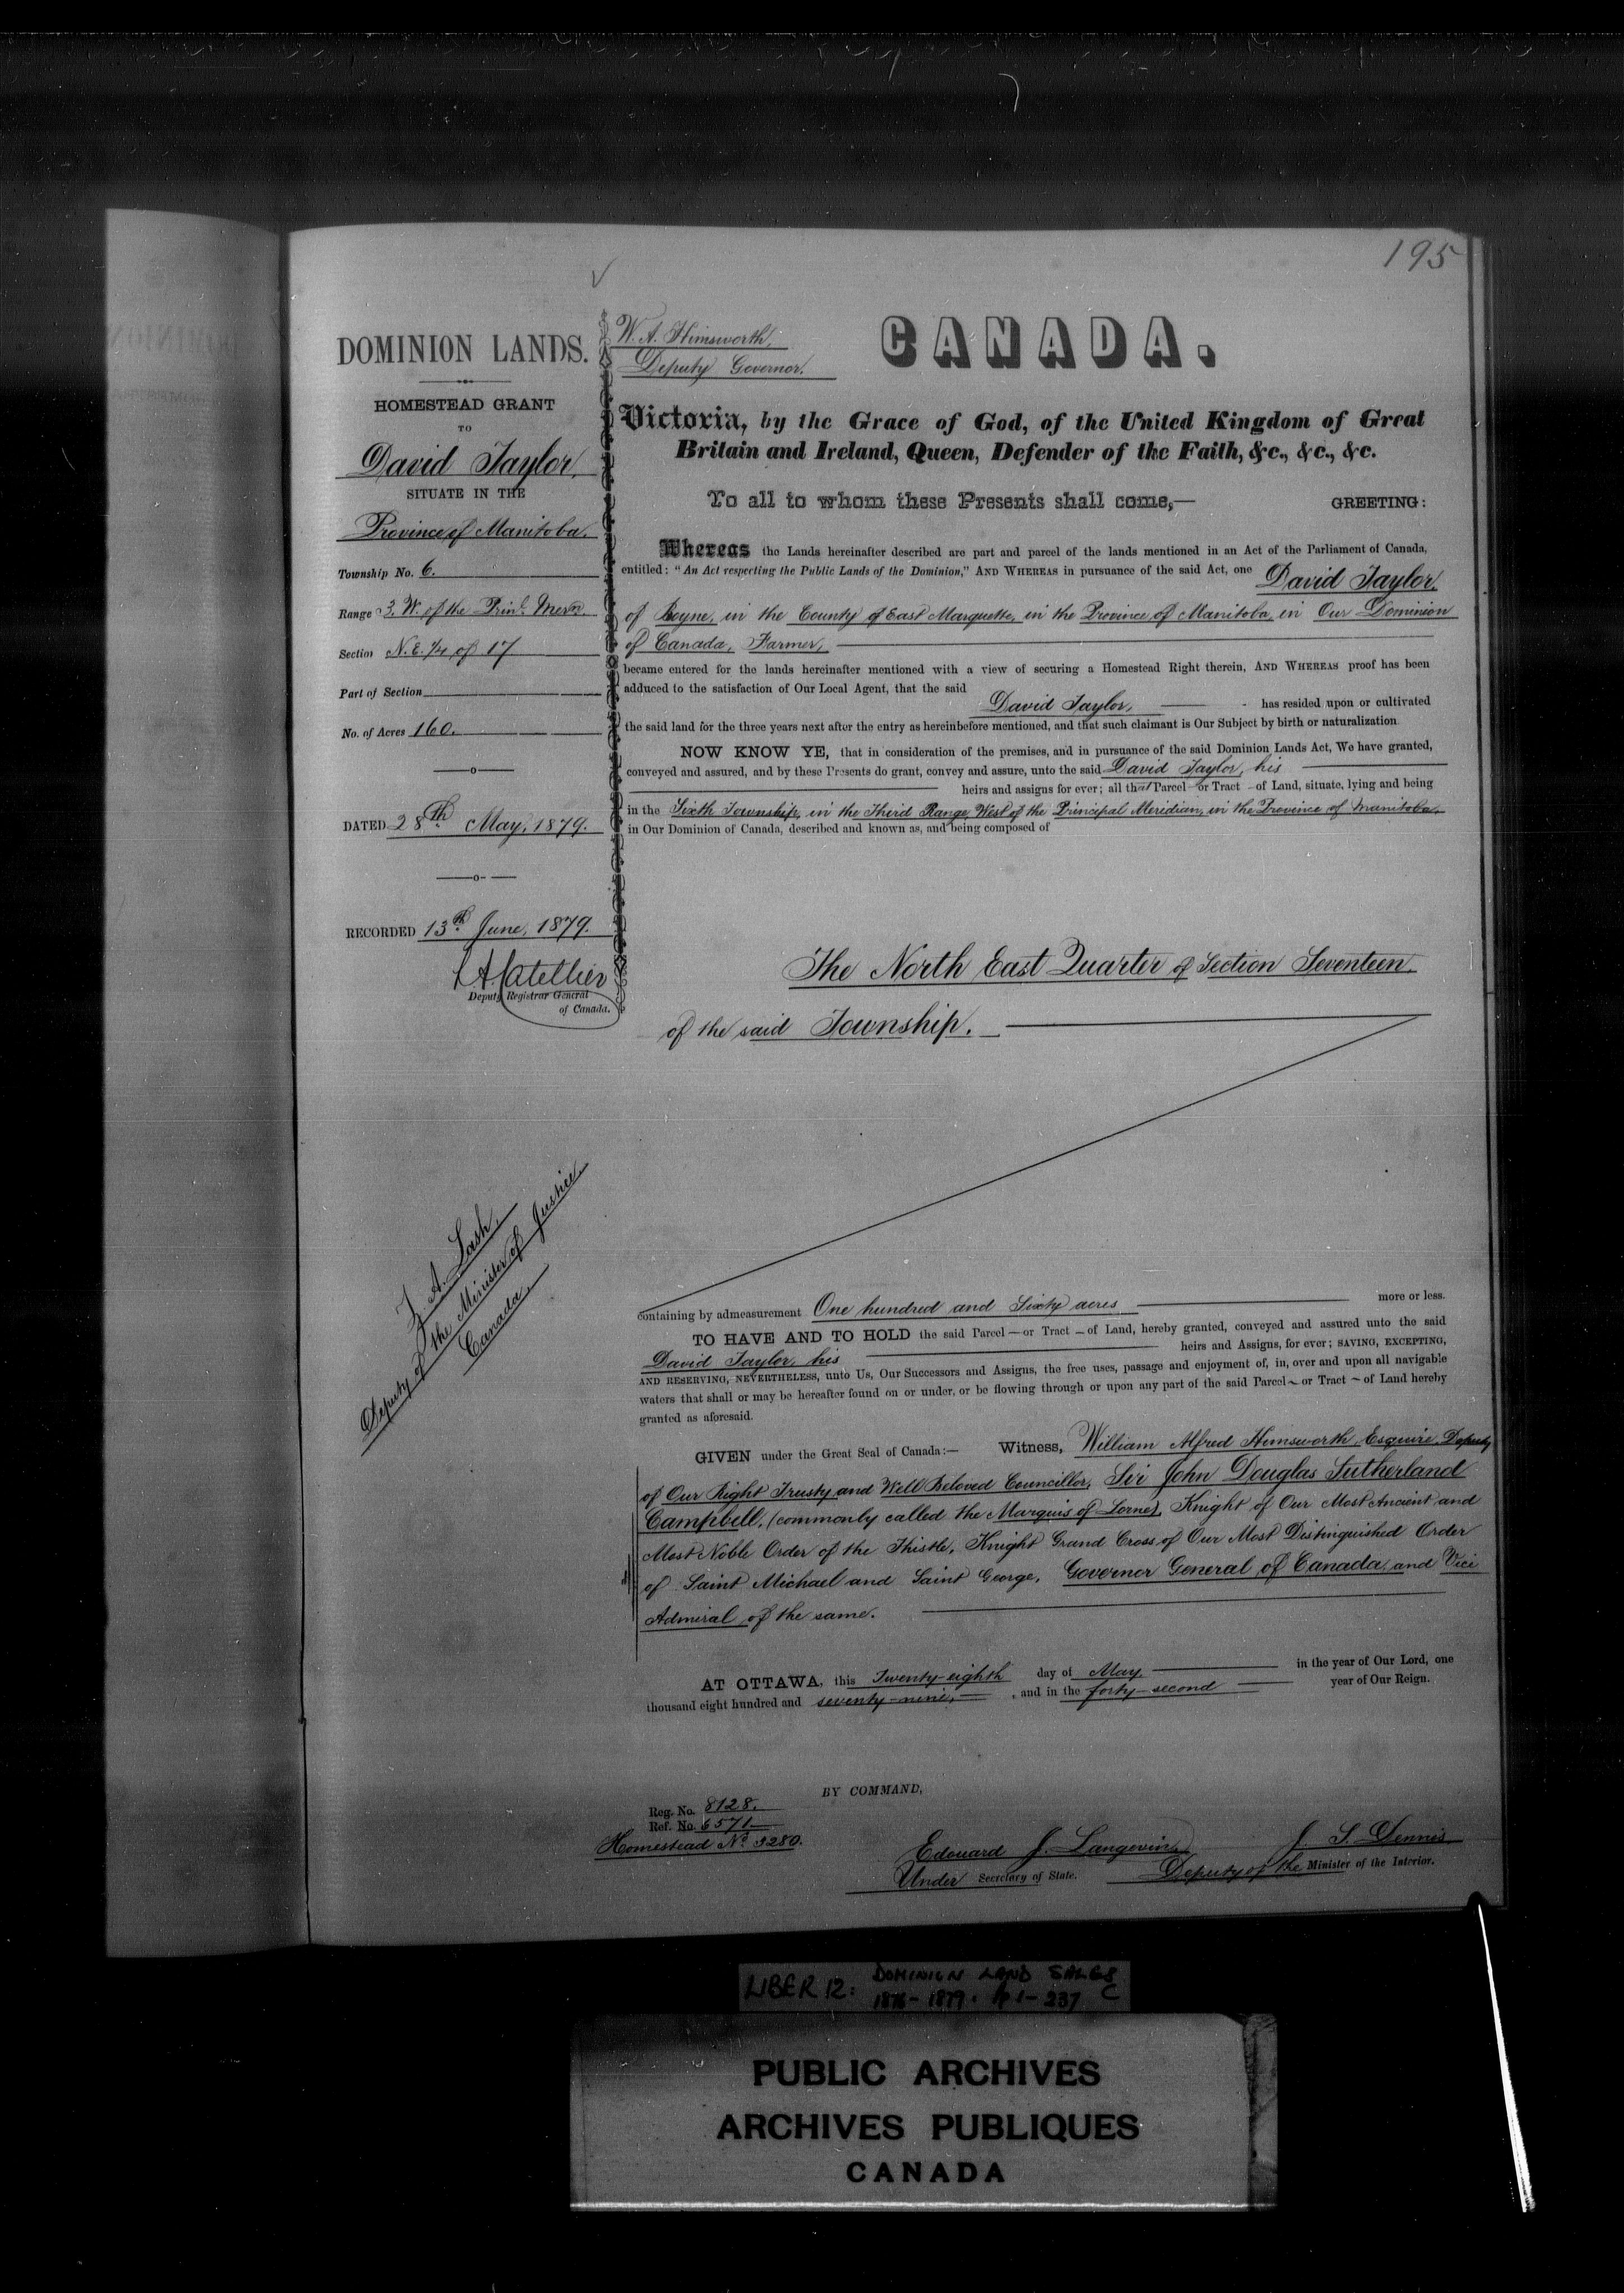 195
DOMINION LANDS.
HOMESTEAD GRANT
TO
David Taylor,
SITUATE IN THE
Province of Manitoba.
Township No. 6.
Range 3. W. of the Prin.l Mern.
Section N.E. 1/4 of 17
Part of Section
No. of Acres 160.
DATED 28th May, 1879.
RECORDED 13th June, 1879.
L.A. Catellier
Deputy Registrar General
of Canada.
Z. A. Lash,
Deputy of the Minister of Justice
Canada,
W. A. Himsworth,
Deputy Governor.
CANADA.
Victoria, by the Grace of God, of the United Kingdom of Great
Britain and Ireland, Queen, Defender of the Faith, &c., &c., &c.
To all to whom these Presents shall come,—
GREETING:
Whereas the Lands hereinafter described are part and parcel of the lands mentioned in an Act of the Parliament of Canada,
entitled: "An Act respecting the Public Lands of the Dominion," AND WHEREAS in pursuance of the said Act, one David Taylor,
of Boyne, in the County of East Marquette, in the Province of Manitoba, in Our Dominion
of Canada, Farmer,
became entered for the lands hereinafter mentioned with a view of securing a Homestead Right therein, AND WHEREAS proof has been
adduced to the satisfaction of Our Local Agent, that the said
David Taylor, has resided upon or cultivated
the said land for the three years next after the entry as hereinbefore mentioned, and that such claimant is Our Subject by birth or naturalization
NOW KNOW YE, that in consideration of the premises, and in pursuance of the said Dominion Lands Act, We have granted,
conveyed and assured, and by these Presents do grant, convey and assure, unto the said David Taylor, his
heirs and assigns for ever; all that Parcel or Tract of Land, situate, lying and being
in the Sixth Township, in the Third Range West of the Principal Meridian, in the Province of Manitoba,
in Our Dominion of Canada, described and known as, and being composed of
The North East Quarter of Section Seventeen
of the said Township.
containing by admeasurement One hundred and Sixty acres more or less.
TO HAVE AND TO HOLD the said Parcel — or Tract — of Land, hereby granted, conveyed and assured unto the said
David Taylor, his heirs and Assigns, for ever; SAVING, EXCEPTING,
AND RESERVING, NEVERTHELESS, unto Us, Our Successors and Assigns, the free uses, passage and enjoyment of, in, over and upon all navigable
waters that shall or may be hereafter found on or under, or be flowing through or upon any part of the said Parcel — or Tract — of Land hereby
granted as aforesaid.
GIVEN under the Great Seal of Canada:— Witness, William Alfred Himsworth Esquire, Deputy
of Our Right Trusty and Well Beloved Councillor, Sir John Douglas Sutherland
Campbell, (commonly called the Marquis of Lorne), Knight of Our Most Ancient and
Most Noble Order of the Thistle, Knight Grand Cross of Our Most Distinguished Order
of Saint Michael and Saint George, Governor General of Canada, and Vice
Admiral of the same.
AT OTTAWA, this Twenty-eighth day of May, in the year of Our Lord, one
thousand eight hundred and seventy-nine, , and in the forty-second year of Our Reign.
BY COMMAND,
Reg. No. 8128.
Ref. No. 6571
Homestead No. 3280.
Edouard J. Langevin,
Under Secretary of State.
J. S. Dennis
Deputy of the Minister of the Interior.
LIBER 12: DOMINION LAND SALES
1876-1879. pp 1-237 C
PUBLIC ARCHIVES
ARCHIVES PUBLIQUES
CANADA